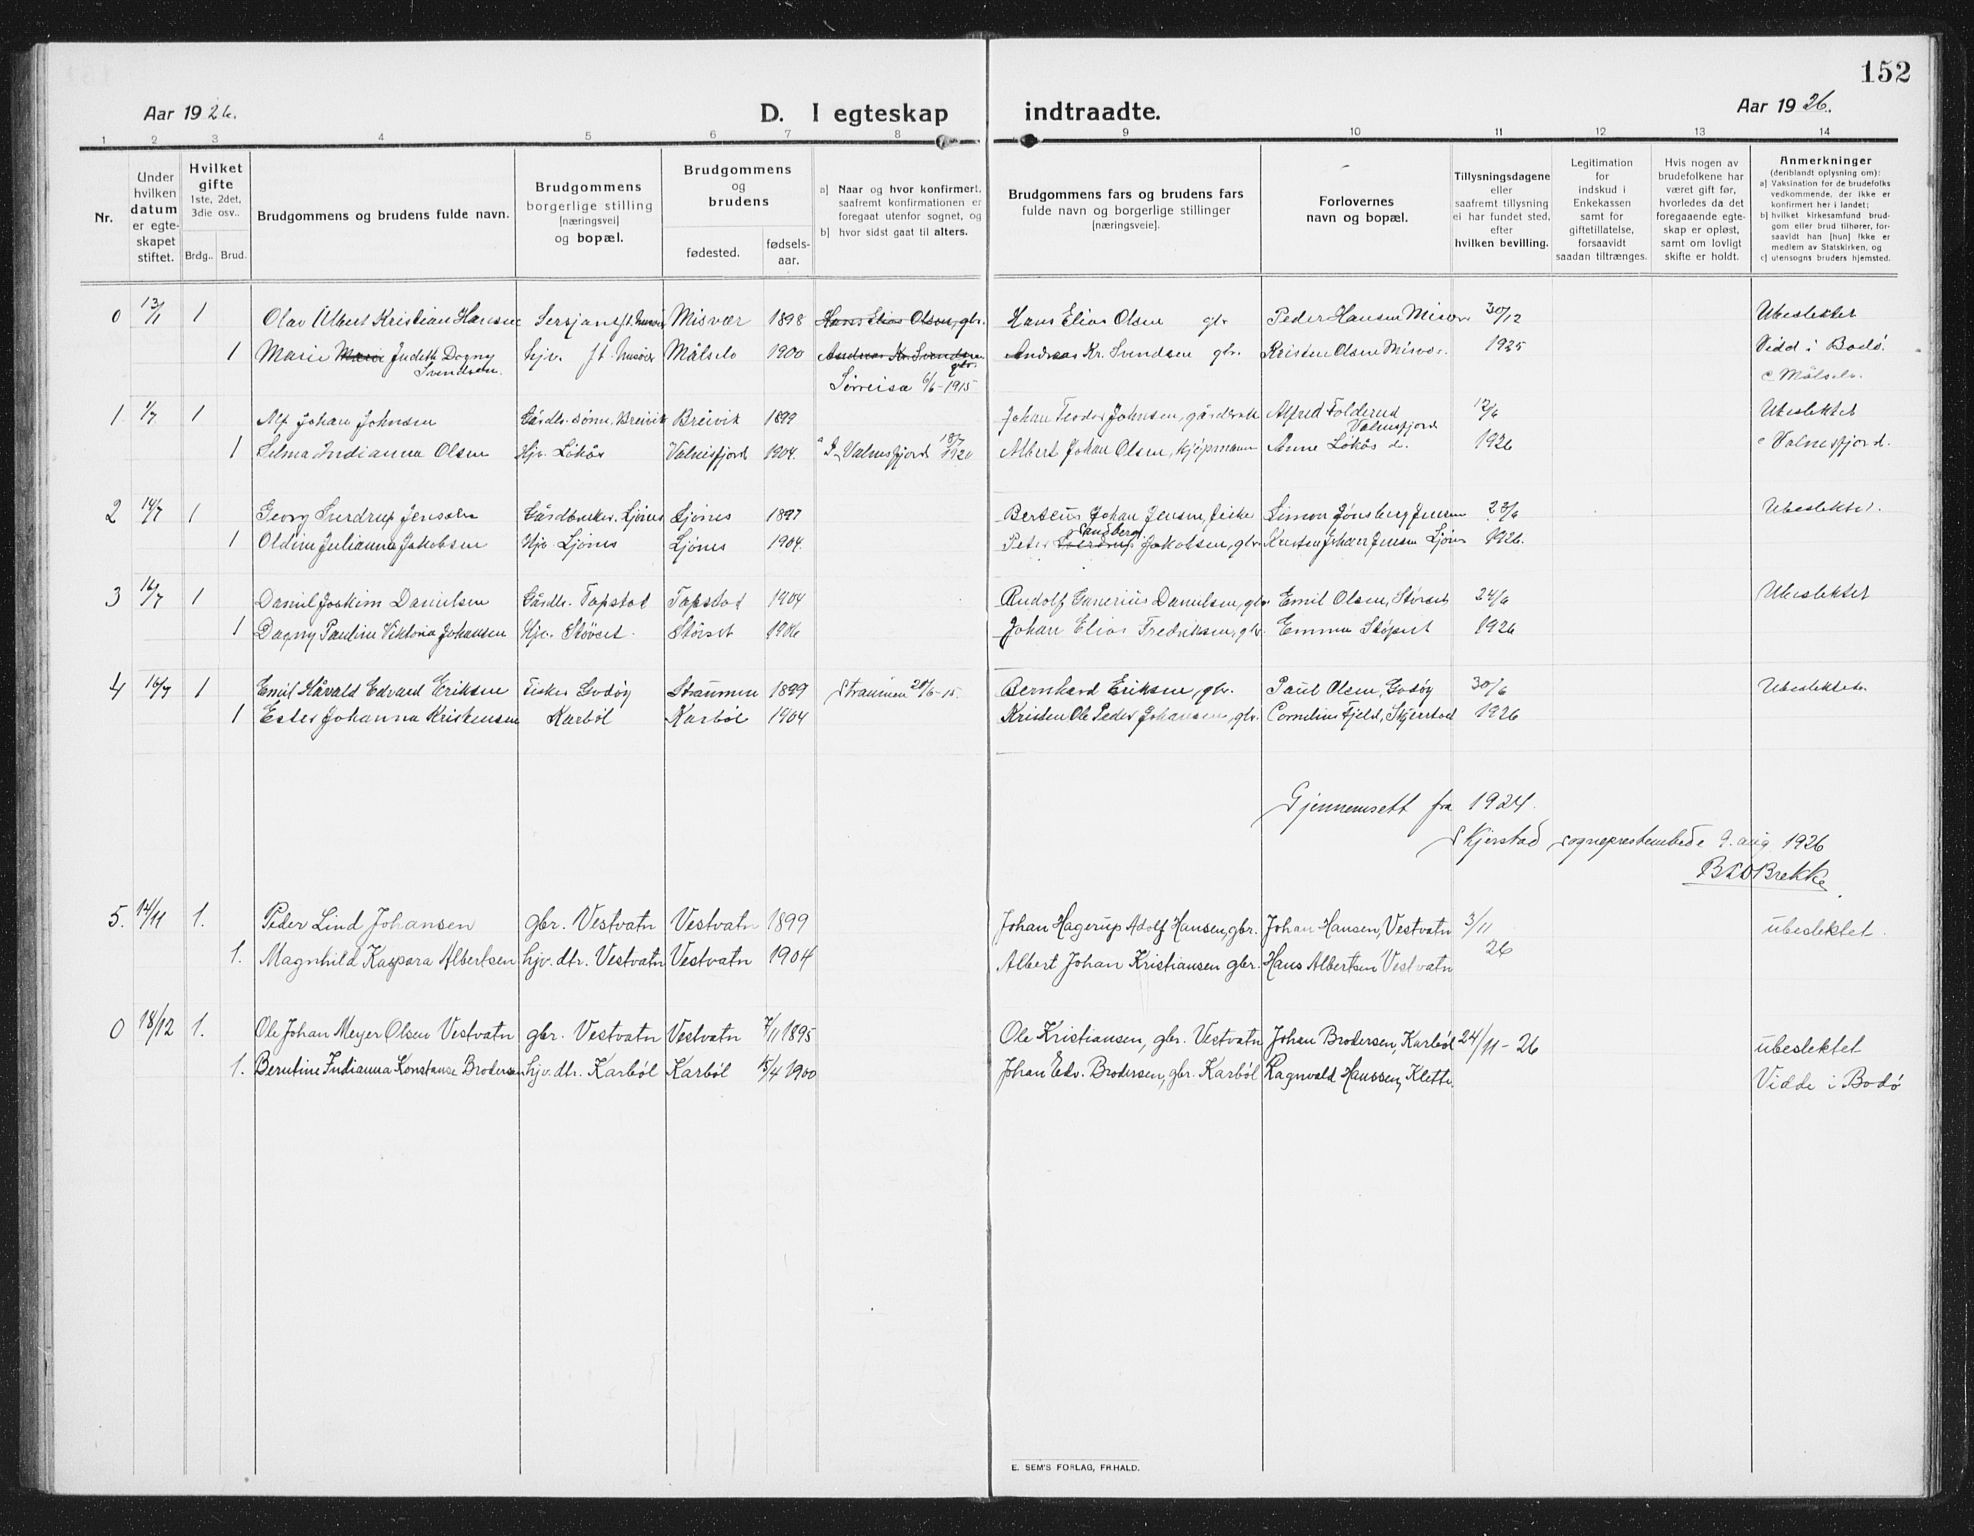 152
Aar 1926. D. I egteskap indtraadte. Aar 1926.
1 2 3 4 5 6 7 8 9 10 11 12 13 14
Nr.
Under hvilken datum er egteskapet stiftet.
Hvilket gifte 1ste, 2det, 3die osv..
Brdg.. Brud.
Brudgommens og brudens fulde navn.
Brudgommens borgerlige stilling [næringsvei] og bopæl.
Brudgommens og brudens
fødested. fødselsaar.
a] Naar og hvor konfirmert, saafremt konfirmationen er foregaat utenfor sognet, og
b] hvor sidst gaat til alters.
Brudgommens fars og brudens fars fulde navn og borgerlige stillinger [næringsveie].
Forlovernes navn og bopæl.
Tillysningsdagene eller saafremt tillysning ei har fundet sted, efter hvilken bevilling.
Legitimation for indskud i Enkekassen samt for giftetillatelse, forsaavidt saadan tiltrænges.
Hvis nogen av brudefolkene har været gift før, hvorledes da det foregaaende egteskap er opløst, samt om lovligt skifte er holdt.
Anmerkninger (deriblandt oplysning om):
a] Vaksination for de brudefolks vedkommende, der ikke er konfirmert her i landet;
b] hvilket kirkesamfund brudgom eller brud tilhører, forsaavidt han [hun] ikke er medlem av Statskirken, og
c] utensogns bruders hjemsted.
0 13/1 1 Olav Albert Kristian Hansen Sersjant, f. Misvær Misvær 1898 Hans Elias Olsen, gbr. Hans Elias Olsen gbr Peder Hansen Misvær 30/12 Ubeslektet
1 Marie Marie Judett Dagny Svendsen hjv. Misvær Målselv 1900 Andreas Kr. Svendsen gbr. Andreas Kr. Svendsen gbr. Kristen Olsen Misvær. 1925 Vidd i Bodø.
Sørreisa 6/6-1915 c Målselv.
1 1/7 1 Alf Johan Johnsen Gårdbr. sønn, Breivik Breivik 1899 Johan Teodor Johnsen, gårdbruk Alfred Folderud Valnesfjord 12/6 Ubeslektet
1 Selma Indianna Olsen Hjv. Løkås Valnesfjord 1904. a I Valnesfjord 18/7 1920 Albert Johan Olsen, kjøpmann Anne Løkås d. 1926 c Valnesfjord.
2 14/7 1 Georg Sverdrup Jensen Gårdbruker. Ljønes Ljønes 1897 Berteus Johan Jensen, fisker Simon Jønsberg Jensen 23/6 Ubeslektet.
1 Oldine Julianna Jakobsen Hjv. Ljønes Ljønes 1904. Peter Sverdrup Sandberg Jakobsen, gbr. Kristen Johan Jensen Ljønes 1926.
3 16/7 1 Daniel Joakim Danielsen Gårdbr. Tapstad Tapstad 1904 Rudolf Gunerius Danielsen, gbr Emil Olsen, Størset 24/6 Ubeslektet
1 Dagny Pauline Viktoria Johansen Hjv. Størset. Størset 1906 Johan Elias Fredriksen, gbr. Emma Størset 1926
4 16/7 1 Emil Håvald Edvard Eriksen Fisker Godøy Straumen 1899 Straumen 20/6-15. Bernhard Eriksen, gbr. Paul Olsen, Godøy 30/6 Ubeslektet.
1 Ester Johanna Kristensen Karbøl Karbøl 1904 Kristen Ole Peder Johansen, gbr. Cornelius Fjeld, Skjerstad 1926
Gjennemsett fra 1924.
Skjerstad sogneprestembede 9. aug. 1926
Brekke
5. 14/11 1. Peder Lind Johansen gbr. Vestvatn Vestvatn 1899 Johan Hagerup Adolf Hansen, gbr. Johan Hansen, Vestvatn 3/11 ubeslektet.
1. Magnhild Kaspara Albertsen hjv. dtr. Vestvatn Vestvatn 1904 Albert Johan Kristiansen gbr. Hans Albertsen Vestvatn 26
0 18/12 1. Ole Johan Meyer Olsen Vestvatn gbr. Vestvatn Vestvatn 7/11 1895 Ole Kristiansen, gbr. Vestvatn Johan Brodersen, Karbøl 24/11-26 ubeslektet
1. Berntine Indianna Konstanse Brodersen hjv. dtr. Karbøl Karbøl 15/4 1900 Johan Edv. Brodersen, gbr. Karbøl Ragnvald Hanssen, Klette. Vidde i Bodø
E. SEM'S FORLAG, FRHALD.